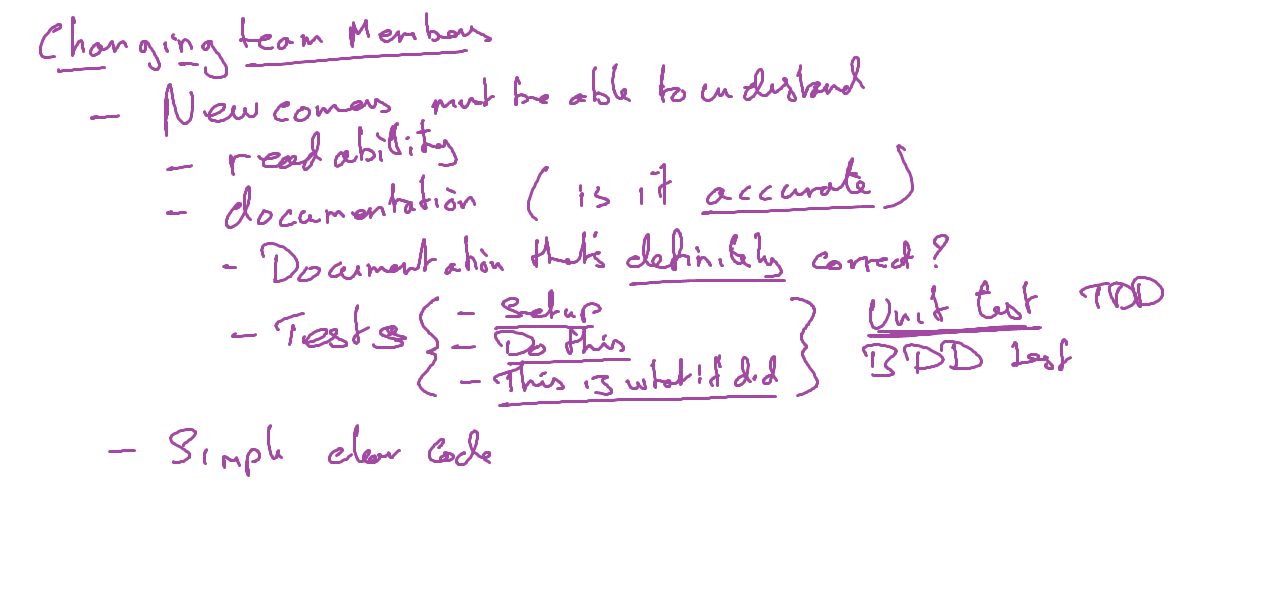 Changing team Members
- Newcomers must be able to understand
- readability
- documentation (is it accurate)
- Documentation that's definitely correct?
- Tests { - Setup
- Do this
- This is what it did }
Unit test TDD
BDD test
- Simple clear code